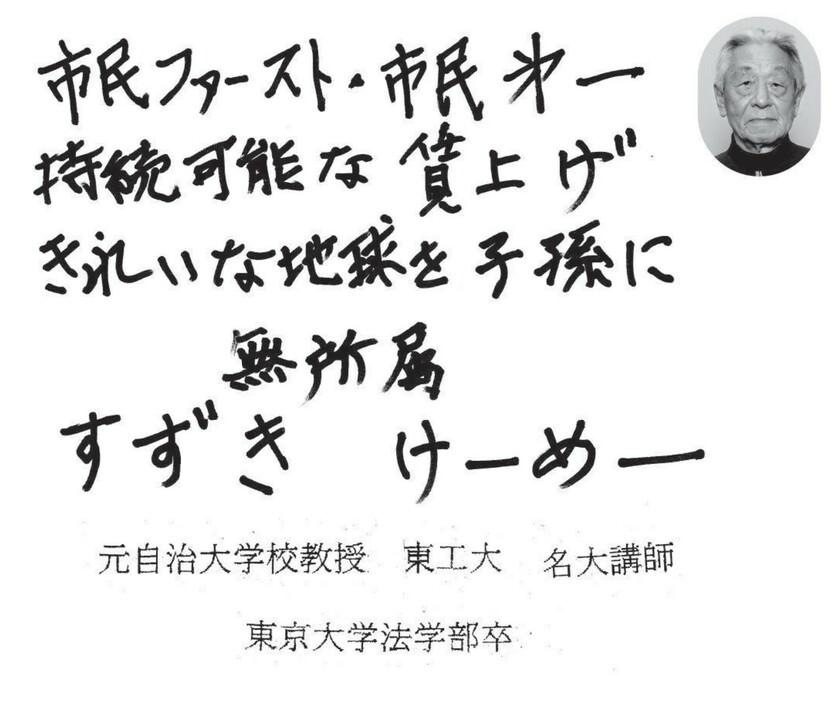 市民ファースト・市民㐧一
持続可能な賃上げ
きれいな地球を子孫に
無所属
すずき けーめー
元自治大学校教授 東工大 名大講師
東京大学法学部卒